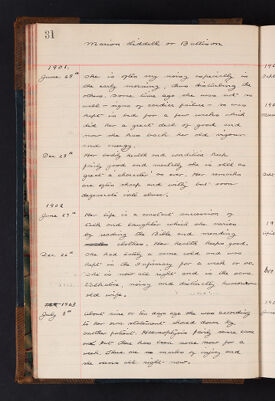 31
Marion Liddell or Bullison
1901.
June 28th She is often very noisy especially in
the early morning, thus disturbing the
others. Some time ago she was not so
well – signs of cardiac failure – so was
kept in bed for a few weeks which
did her a great deal of good and
now she has back her old vigour
and energy.
Dec 28th Her bodily health and condition keep
fairly good and mentally she is still as
great a character as ever. Her remarks
are often sharp and witty but soon
degenerate into abuse.
1902
June 27th Her life is a constant succession of
talk and laughter which she varies
by reading the Bible and mending
clothes. Her health keeps good.
Dec 26th She had lately a severe cold and was
kept in the Infirmary for a week or so.
She is now all right and is the same
talkative, noisy and distinctly humorous
old wife.
1903
July 8th About nine or ten days ago she was according
to her own statement shoved down by
another patient. Haemoptysis fairly severe came
on but there has been none now for a
week. There are no marks of injury and
she seems all right now.